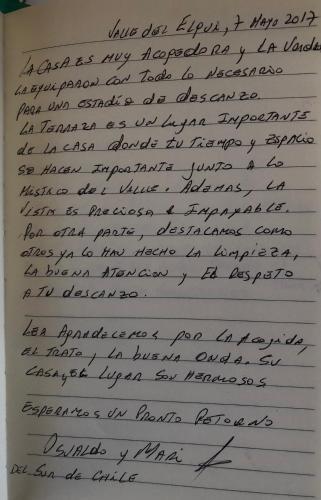 VALLE DEL ELQUI, 7 MAYO 2017
LA CASA ES MUY ACOGEDORA Y LA VERDAD
LA EQUIPARON CON TODO LO NECESARIO
PARA UNA ESTADÍA DE DESCANZO.
LA TERRAZA ES UN LUGAR IMPORTANTE
DE LA CASA DONDE TU TIEMPO Y ESPACIO
SE HACEN IMPORTANTE JUNTO A LO
MISTICO DEL VALLE. ADEMAS, LA
VISTA ES PRECIOSA E IMPAGABLE.
POR OTRA PARTE, DESTACAMOS COMO
OTROS YA LO HAN HECHO LA LIMPIEZA,
LA BUENA ATENCION Y EL RESPETO
A TU DESCANZO.
LES AGRADECEMOS POR LA ACOGIDA,
EL TRATO, LA BUENA ONDA. SU
CASA Y EL LUGAR SON HERMOSOS
ESPERAMOS UN PRONTO RETORNO
OSVALDO Y MARI
DEL SUR DE CHILE